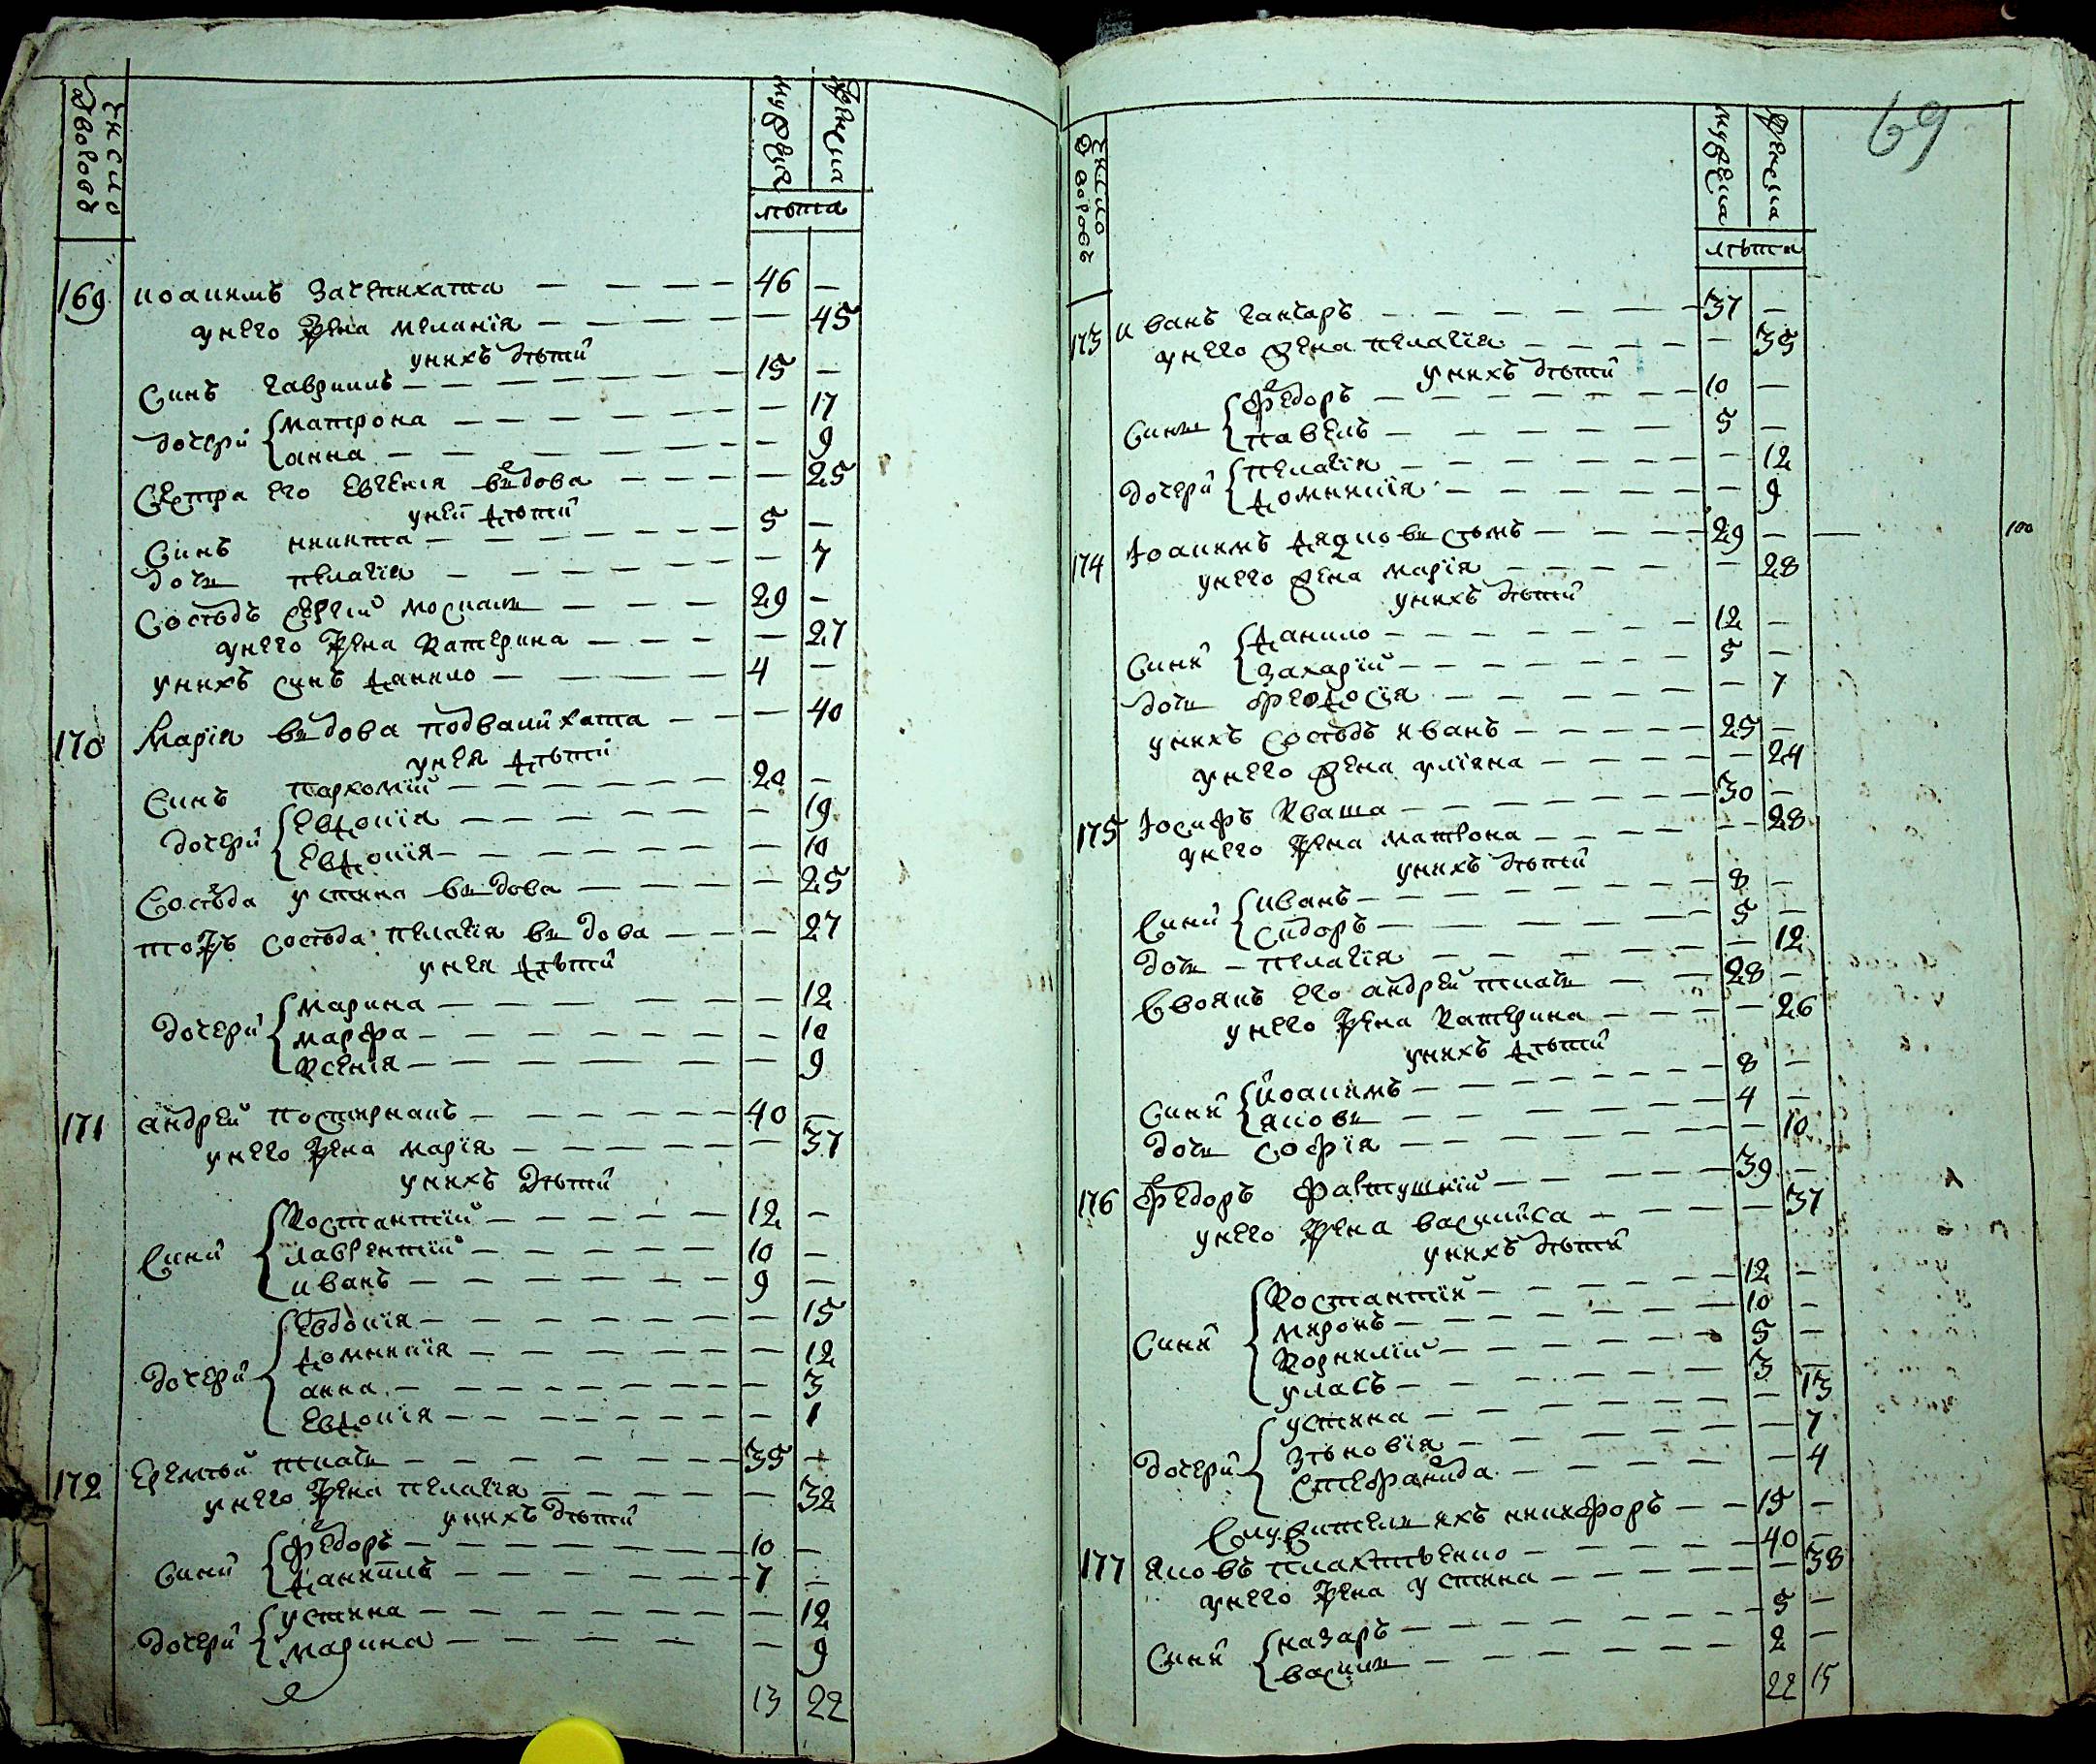 число дворовъ
мужеска
женска
лѣта
169 иоакимъ Зачепихата — 46 —
унего жена меланїя — — 45
унихъ дѣти
Синъ гаврилъ — 15 —
дочери матрона — — 17
анна — — 9
Сестра его Евгенїя вдова — — 25
уней дѣти
Синъ никита — 5 —
дочь пелагїя — — 7
Сосѣдъ Сергій — 29 —
унего жена Катерина — — 27
унихъ синъ данило — 4 —
170 Марїя вдова — — 40
унея дѣти
Синъ пархомїй — 20 —
дочери Евдокїя — — 19
Евдокїя — — 10
Сосѣда устина вдова — — 25
тожъ Сосѣда пелагїя вдова — — 27
унея дѣти
дочери марина — — 12
марфа — — 10
Ксенїя — — 9
171 андрей пастернакъ — 40 —
унего жена марїя — — 37
унихъ дѣти
Сини Костантїй — 12 —
лаврентїй — 10 —
иванъ — 9 —
дочери Евдокїя — — 15
домникїя — — 12
анна — — 3
Евдокїя — — 1
172 Еремѣй ткачь — 35 —
унего жена пелагїя — — 32
унихъ дѣти
Сини федоръ — 10 —
данїилъ — 7 —
дочери устина — — 12
марина — — 9
13 22
69
число дворовъ
мужеска
женска
лѣта
173 иванъ ганчаръ — 37 —
унего жена пелагїя — — 35
унихъ дѣти
Сини федоръ — 10 —
павелъ — 5 —
дочери пелагїя — — 12
домникїя — — 9
174 Іоакимъ — 29 — 100
унего жена марїя — — 28
унихъ дѣти
Сини данило — 12 —
захарїй — 5 —
дочь феодосїя — — 7
унихъ сосѣдъ иванъ — 25 —
унего жена улїяна — — 24
175 Іосифъ Кваша — 30 —
унего жена матрона — — 28
унихъ дѣти
Сини иванъ — 8 —
сидоръ — 5 —
дочь пелагїя — — 12
Своякъ его андрей ткачь — 28 —
унего жена Катерина — — 26
унихъ дѣти
Сини иоакимъ — 8 —
яковь — 4 —
дочь софїя — — 10
176 федоръ — 39 —
унего жена василиса — — 37
унихъ дѣти
Сини Костантїй — 12 —
миронъ — 10 —
Корнилїй — 5 —
уласъ — 3 —
дочери устина — — 13
Зѣновїя — — 7
Стефанида — — 4
Служитель ихъ никифоръ — 15 —
177 Яковъ — 40 —
унего жена устина — — 38
Сини назаръ — 5 —
василь — 2 —
22 15